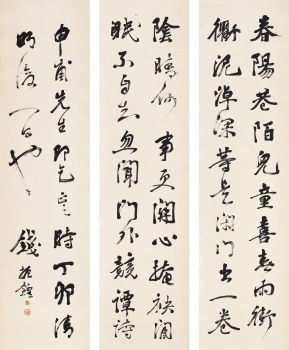 春陽巷陌兒童喜春雨街
衢泥淖深等是閉門書一卷
陰晴何事更關心掩閒
眠不与知忽聞門外競譚詩
申甫先生即乞正時丁卯清
明後一日也
錢振鍠